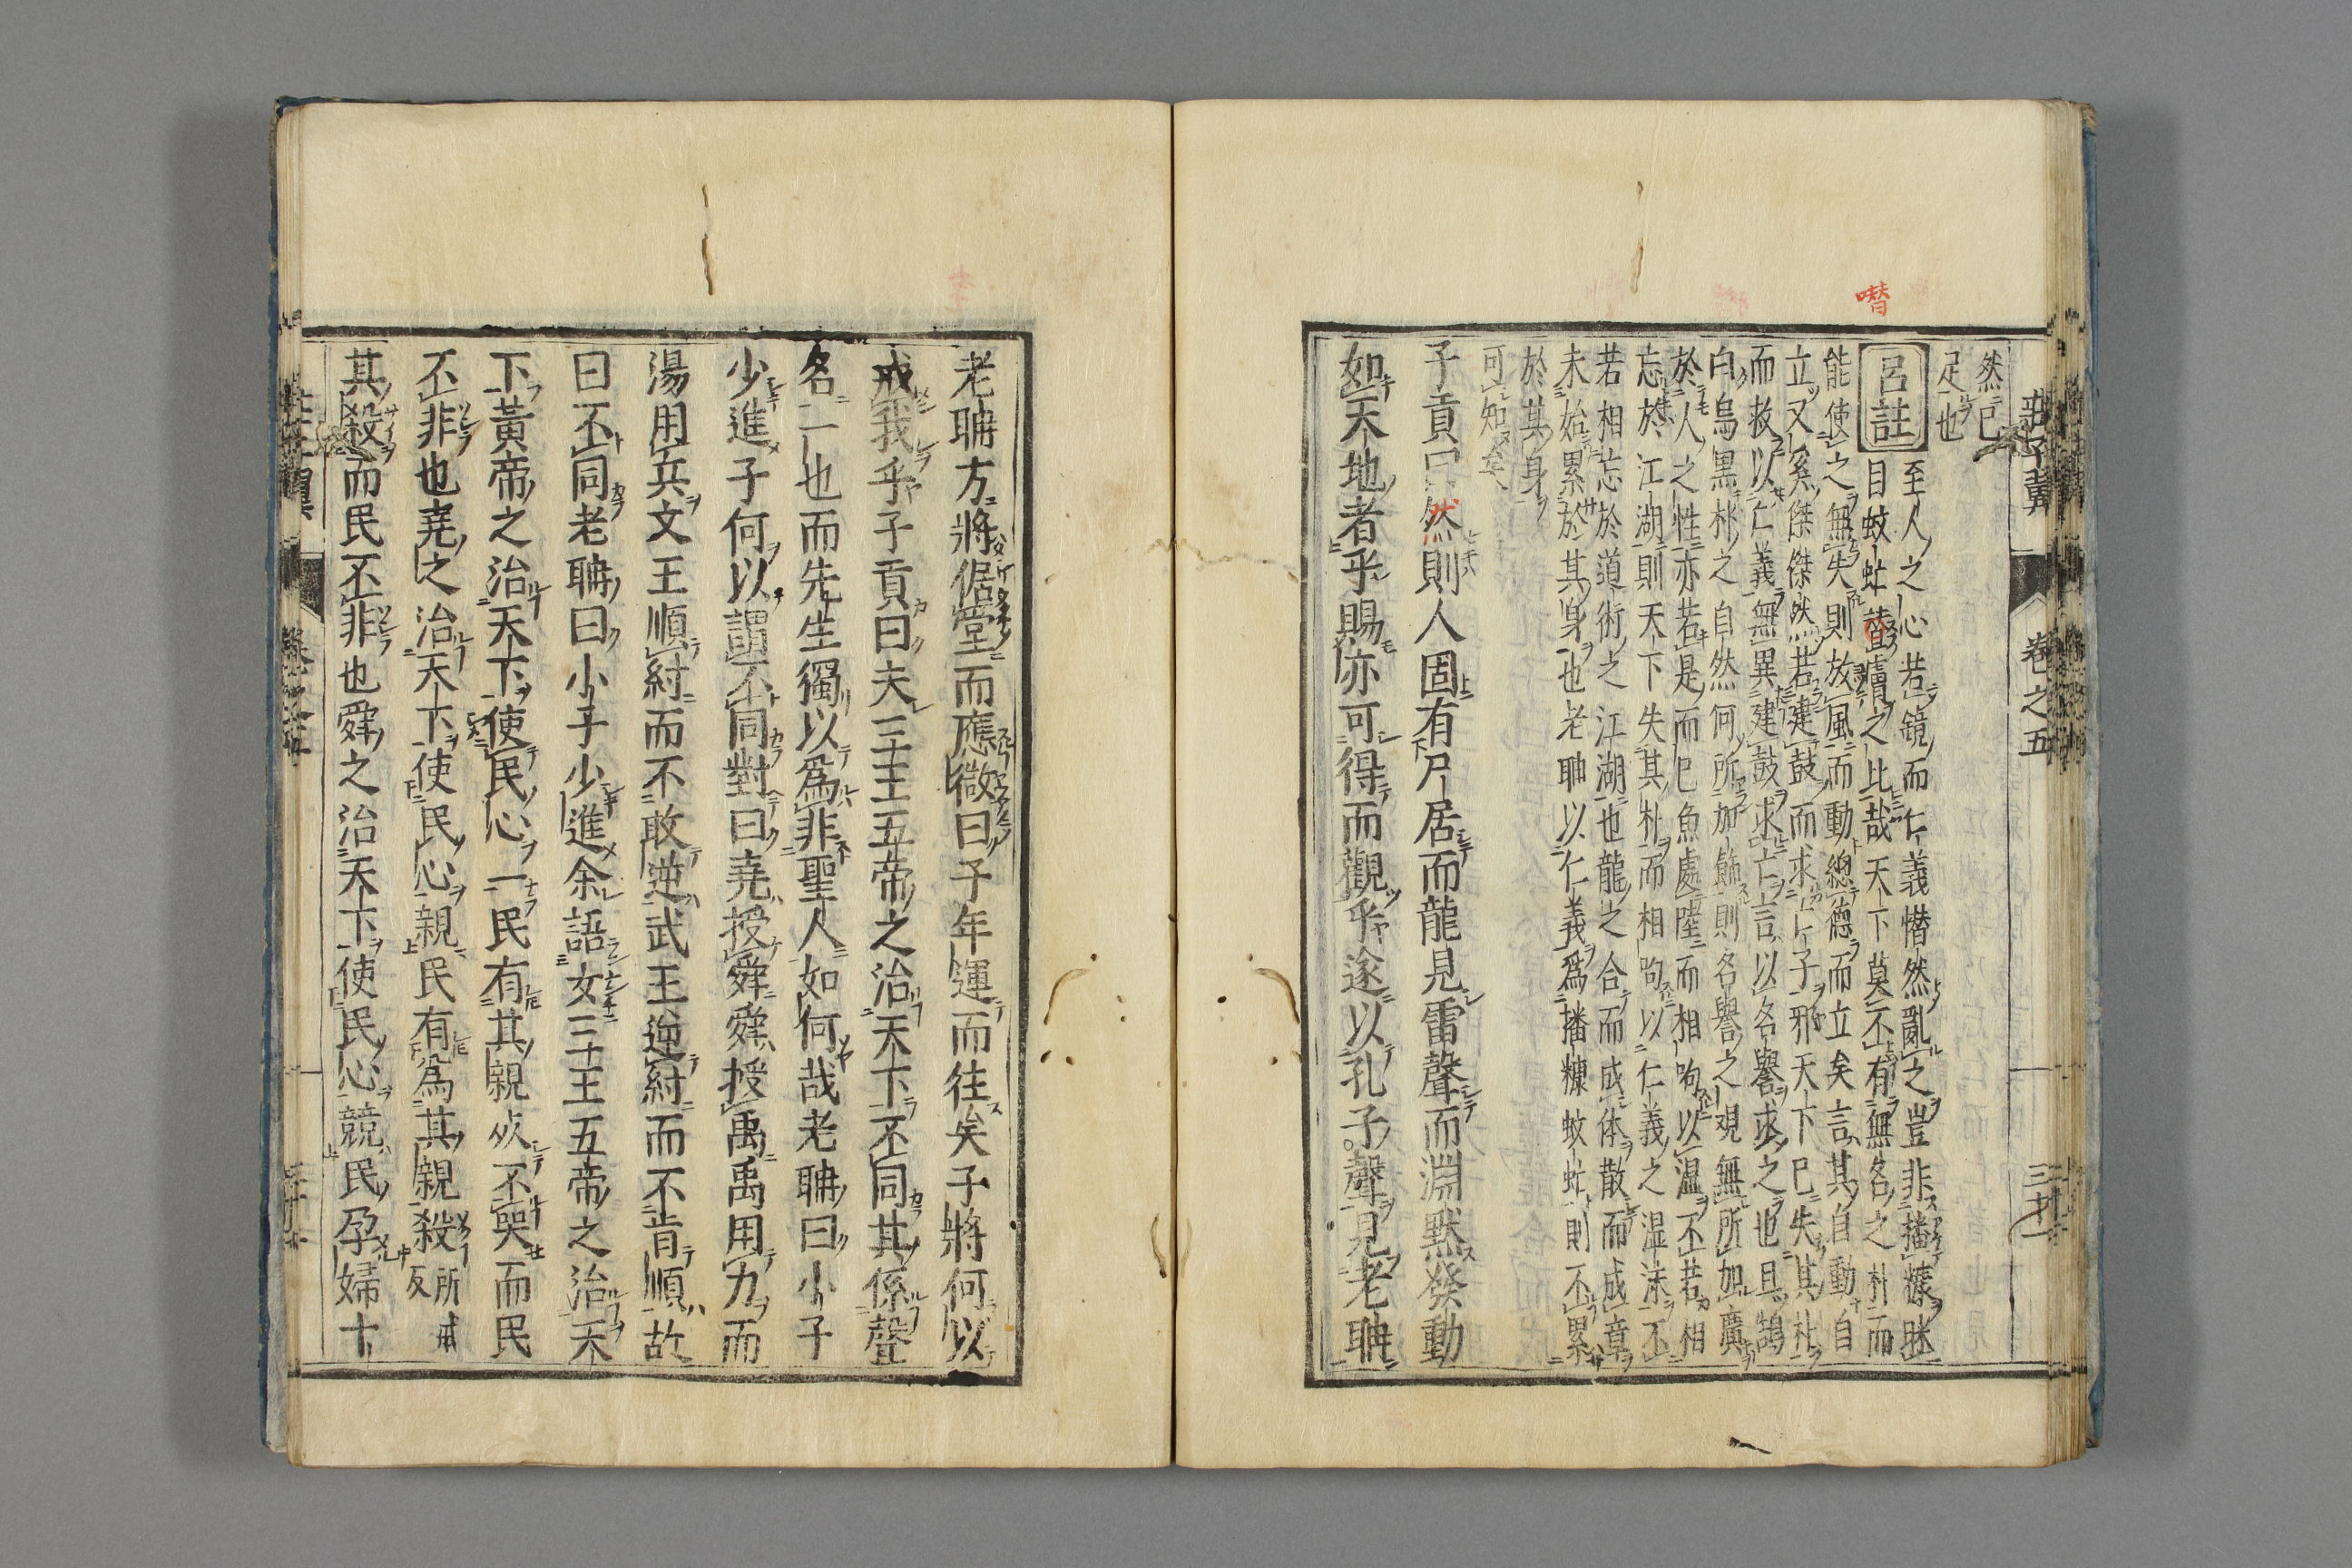 莊子翼
卷之五
三十一
然已
足也
呂註
至人之心若鏡而仁義憯然亂之豈非播糠眯
目蚊虻噆膚之比哉天下莫不有無名之朴而
能使之無失則放風而動總德而立矣言其自動自
立又奚傑傑然若建鼓而求亡子邪天下已失其朴
而救以仁義無異建鼓求亡言以名譽求之也且鵠
白烏黑朴之自然何所加飾則名譽之觀無所加廣
於人之性亦若是而已魚處陸而相呴以溫不若相
忘於江湖則天下失其朴而相呴以仁義之溼沫不
若相忘於道術之江湖也龍之合而成体散而成章
未始累於其身也老聃以仁義爲播糠蚊虻則不累
於其身
可知矣
子貢曰然則人固有尸居而龍見雷聲而淵默發動
如天地者乎賜亦可得而觀乎遂以孔子聲見老聃
老聃方將倨堂而應微曰子年運而往矣子將何以
戒我乎子貢曰夫三王五帝之治天下不同其係聲
名一也而先生獨以爲非聖人如何哉老聃曰小子
少進子何以謂不同對曰堯授舜舜授禹禹用力而
湯用兵文王順紂而不敢逆武王逆紂而不肯順故
曰不同老聃曰小子少進余語女三王五帝之治天
下黃帝之治天下使民心一民有其親死不哭而民
不非也堯之治天下使民心親民有爲其親殺所戒反
其殺而民不非也舜之治天下使民心競民孕婦十